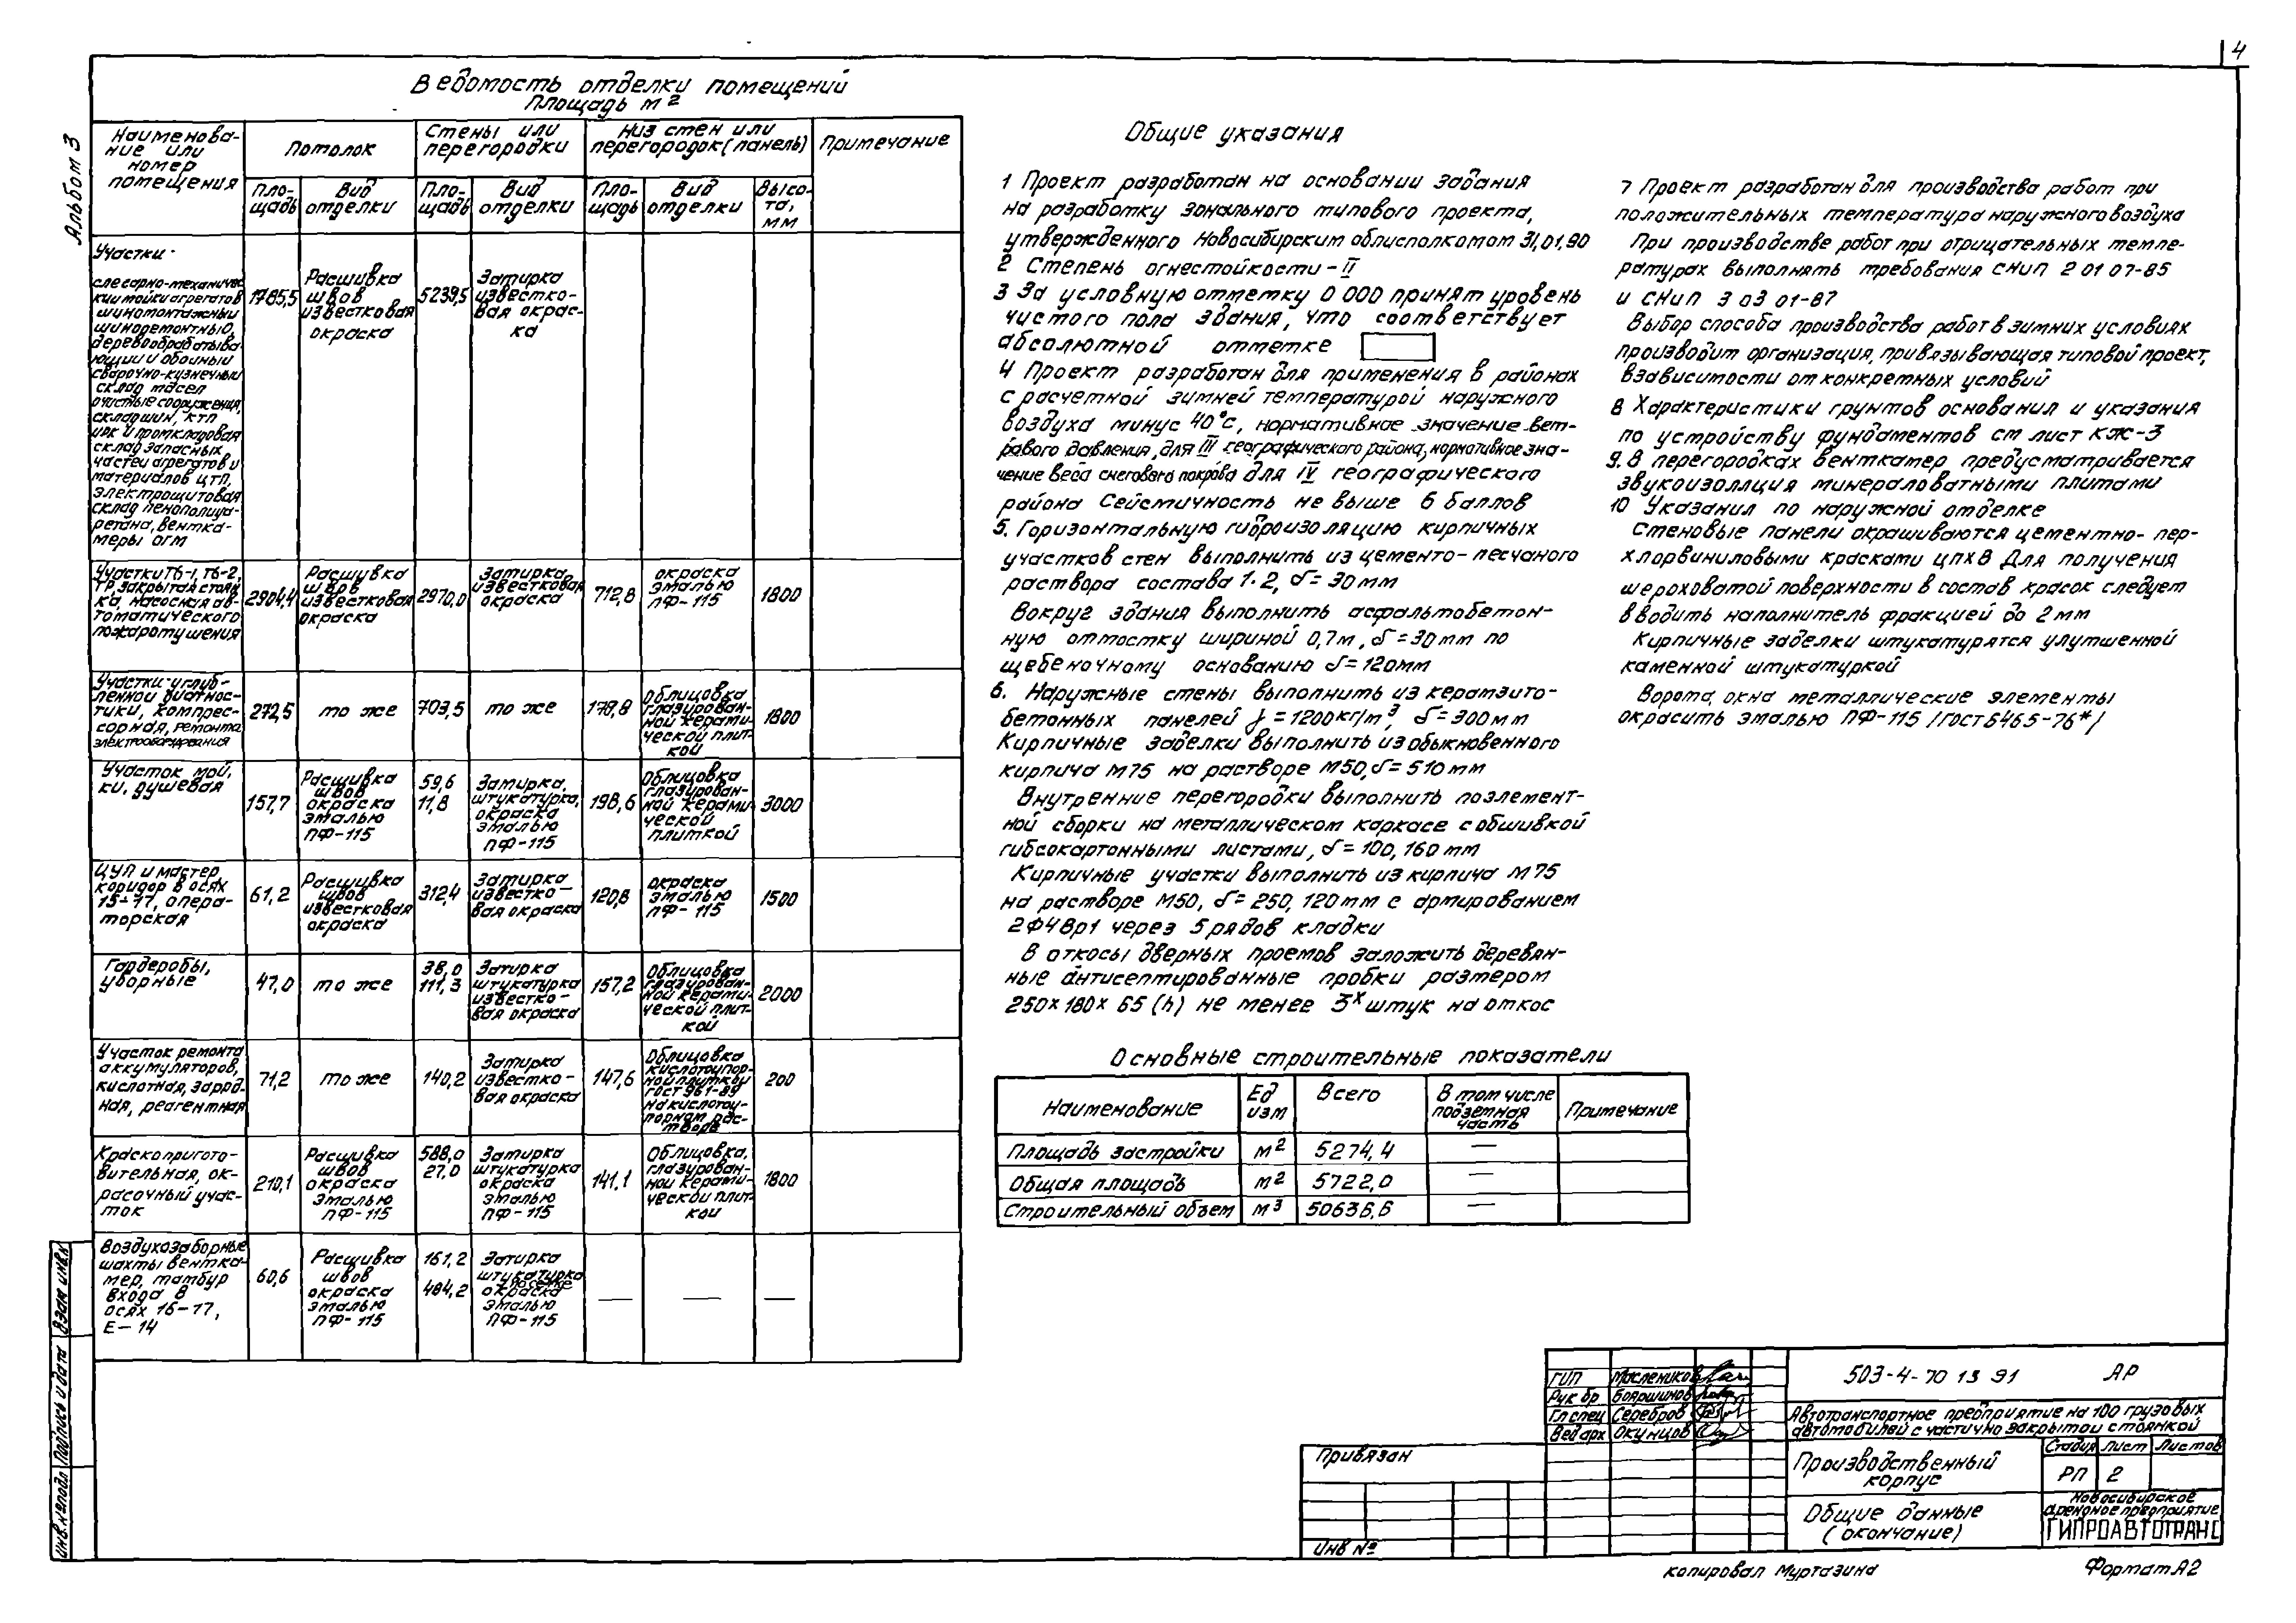 4
Альбом 3
Ведомость отделки помещений
Площадь м2
Наименова-
ние или
номер
помещения
Потолок
Стены или
перегородки
Низ стен или
перегородок (панель)
Примечание
Пло-
щадь
Вид
отделки
Пло-
щадь
Вид
отделки
Пло-
щадь
Вид
отделки
Высо-
та,
мм
Участки
слесарно-механичес
кий мойки агрегатов
шиномонтажный
шинодемонтный,
деревообрабатыва-
ющий и обойный
сварочно-кузнечный
склад масел
очистные сооружения,
склад шин, КТП
ИРК и промкладовая
склад запасных
частей агрегатов и
материалов ЦТП,
электрощитовая
склад пенополиуре-
ретана, вентка-
меры ОГМ
1785,5
Расшивка
швов
известковая
окраска
5239,5
Затирка
известко-
вая окрас-
ка
Участки Т6-1, Т6-2,
ТР, закрытая стоян
ка, насосная ав-
томатического
пожаротушения
2904,4
Расшивка
швов
известковая
окраска
2970,0
Затирка
известковая
окраска
712,8
окраска
эмалью
ПФ-115
1800
Участки-углуб-
ленной диагнос-
тики, компрес-
сорная, ремонта
электрооборудования
272,5
то же
703,5
то же
178,8
Облицовка
глазурован-
ной керами-
ческой плит-
кой
1800
Участок мой,
ки, душевая
157,7
Расшивка
швов
окраска
эмалью
ПФ-115
59,6
11,8
Затирка,
штукатурка,
окраска
эмалью
ПФ-115
198,6
Облицовка
глазурован-
ной керами
ческой
плиткой
3000
ЦУП и мастер
коридор в осях
15-17, опера-
торская
61,2
Расшивка
швов
известковая
окраска
312,4
Затирка
известко-
вая окраска
120,8
окраска
эмалью
ПФ-115
1500
Гардеробы,
уборные
47,0
то же
38,0
111,3
Затирка
штукатурка
известко-
вая окраска
157,2
Облицовка
глазурован-
ной керами-
ческой плит-
кой
2000
Участок ремонта
аккумуляторов,
кислотная, заряд-
ная, реагентная
71,2
то же
140,2
Затирка
известко-
вая окраска
147,6
Облицовка
кислотоупор-
ной плиткой
ГОСТ 961-89
на кислотоу-
порном рас-
творе
200
Краскопригото-
вительная, ок-
расочный учас-
ток
210,1
Расшивка
швов
окраска
эмалью
ПФ-115
588,0
27,0
Затирка
штукатурка
окраска
эмалью
ПФ-115
141,1
Облицовка,
глазурован-
ной керами-
ческой плит-
кой
1800
Воздухозаборные
шахты вентка-
мер, тамбур
входа в
осях 16-17,
Е-14
60,6
Расшивка
швов
окраска
эмалью
ПФ-115
161,2
484,2
Затирка
штукатурка
по сетке
окраска
эмалью
ПФ-115
—
—
—
Общие указания
1 Проект разработан на основании задания
на разработку зонального типового проекта,
утвержденного Новосибирским облисполкомом 31,01,90
2 Степень огнестойкости - II
3 За условную отметку 0 000 принят уровень
чистого пола здания, что соответствует
абсолютной отметке
4 Проект разработан для применения в районах
с расчетной зимней температурой наружного
воздуха минус 40°С, нормативное значение вет-
рового давления, для III географического района, нормативное зна-
чение веса снегового покрова для IV географического
района Сейсмичность не выше 6 баллов
5. Горизонтальную гидроизоляцию кирпичных
участков стен выполнить из цементо-песчаного
раствора состава 1:2, δ=30мм
Вокруг здания выполнить асфальтобетон-
ную отмостку шириной 0,7м, δ=30мм по
щебеночному основанию δ=120мм
6. Наружные стены выполнить из керамзито-
бетонных панелей γ=1200кг/м³, δ=300мм
Кирпичные заделки выполнить из обыкновенного
кирпича М75 на растворе М50, δ=510мм
Внутренние перегородки выполнить поэлемент-
ной сборки на металлическом каркасе с обшивкой
гибсокартонными листами, δ=100, 160мм
Кирпичные участки выполнить из кирпича М75
на растворе М50, δ=250, 120мм с армированием
2Ф4Вр1 через 5 рядов кладки
В откосы дверных проемов заложить деревян-
ные антисептированные пробки размером
250х180х65 (h) не менее 3х штук на откос
7 Проект разработан для производства работ при
положительных температура наружного воздуха
При производстве работ при отрицательных темпе-
ратурах выполнять требования СНиП 2 01 07-85
и СНиП 3 03 01-87
Выбор способа производства работ в зимних условиях
производит организация, привязывающая типовой проект,
в зависимости от конкретных условий
8 Характеристики грунтов основания и указания
по устройству фундаментов см лист КЖ-3
9. В перегородках венткамер предусматривается
звукоизоляция минераловатными плитами
10 Указания по наружной отделке
Стеновые панели окрашиваются цементно-пер-
хлорвиниловыми красками ЦПХВ Для получения
шероховатой поверхности в состав красок следует
вводить наполнитель фракцией до 2мм
Кирпичные заделки штукатурятся улутшенной
каменной штукатуркой
Ворота, окна металлические элементы
окрасить эмалью ПФ-115 /ГОСТ 6465-76*/
Основные строительные показатели
Наименование
Ед
изм
Всего
В том числе
подземная
часть
Примечание
Площадь застройки м2 5274,4 —
Общая площадь м2 5722,0 —
Строительный объем м3 50636,6 —
Взам инв.№
Подпись и дата
Инв.№ подл
Привязан
Инв №
ГИП Маслеников
Рук бр Бояршинов
Гл спец Серебров
Вед арх Окунцов
503-4-70 13 91 АР
Автотранспортное предприятие на 100 грузовых
автомобилей с частично закрытой стоянкой
Производственный
корпус
Стадия Лист Листов
РП 2
Общие данные
(окончание)
Новосибирское
арендное предприятие
ГИПРОАВТОТРАНС
Копировал Муртазина
Формат А2